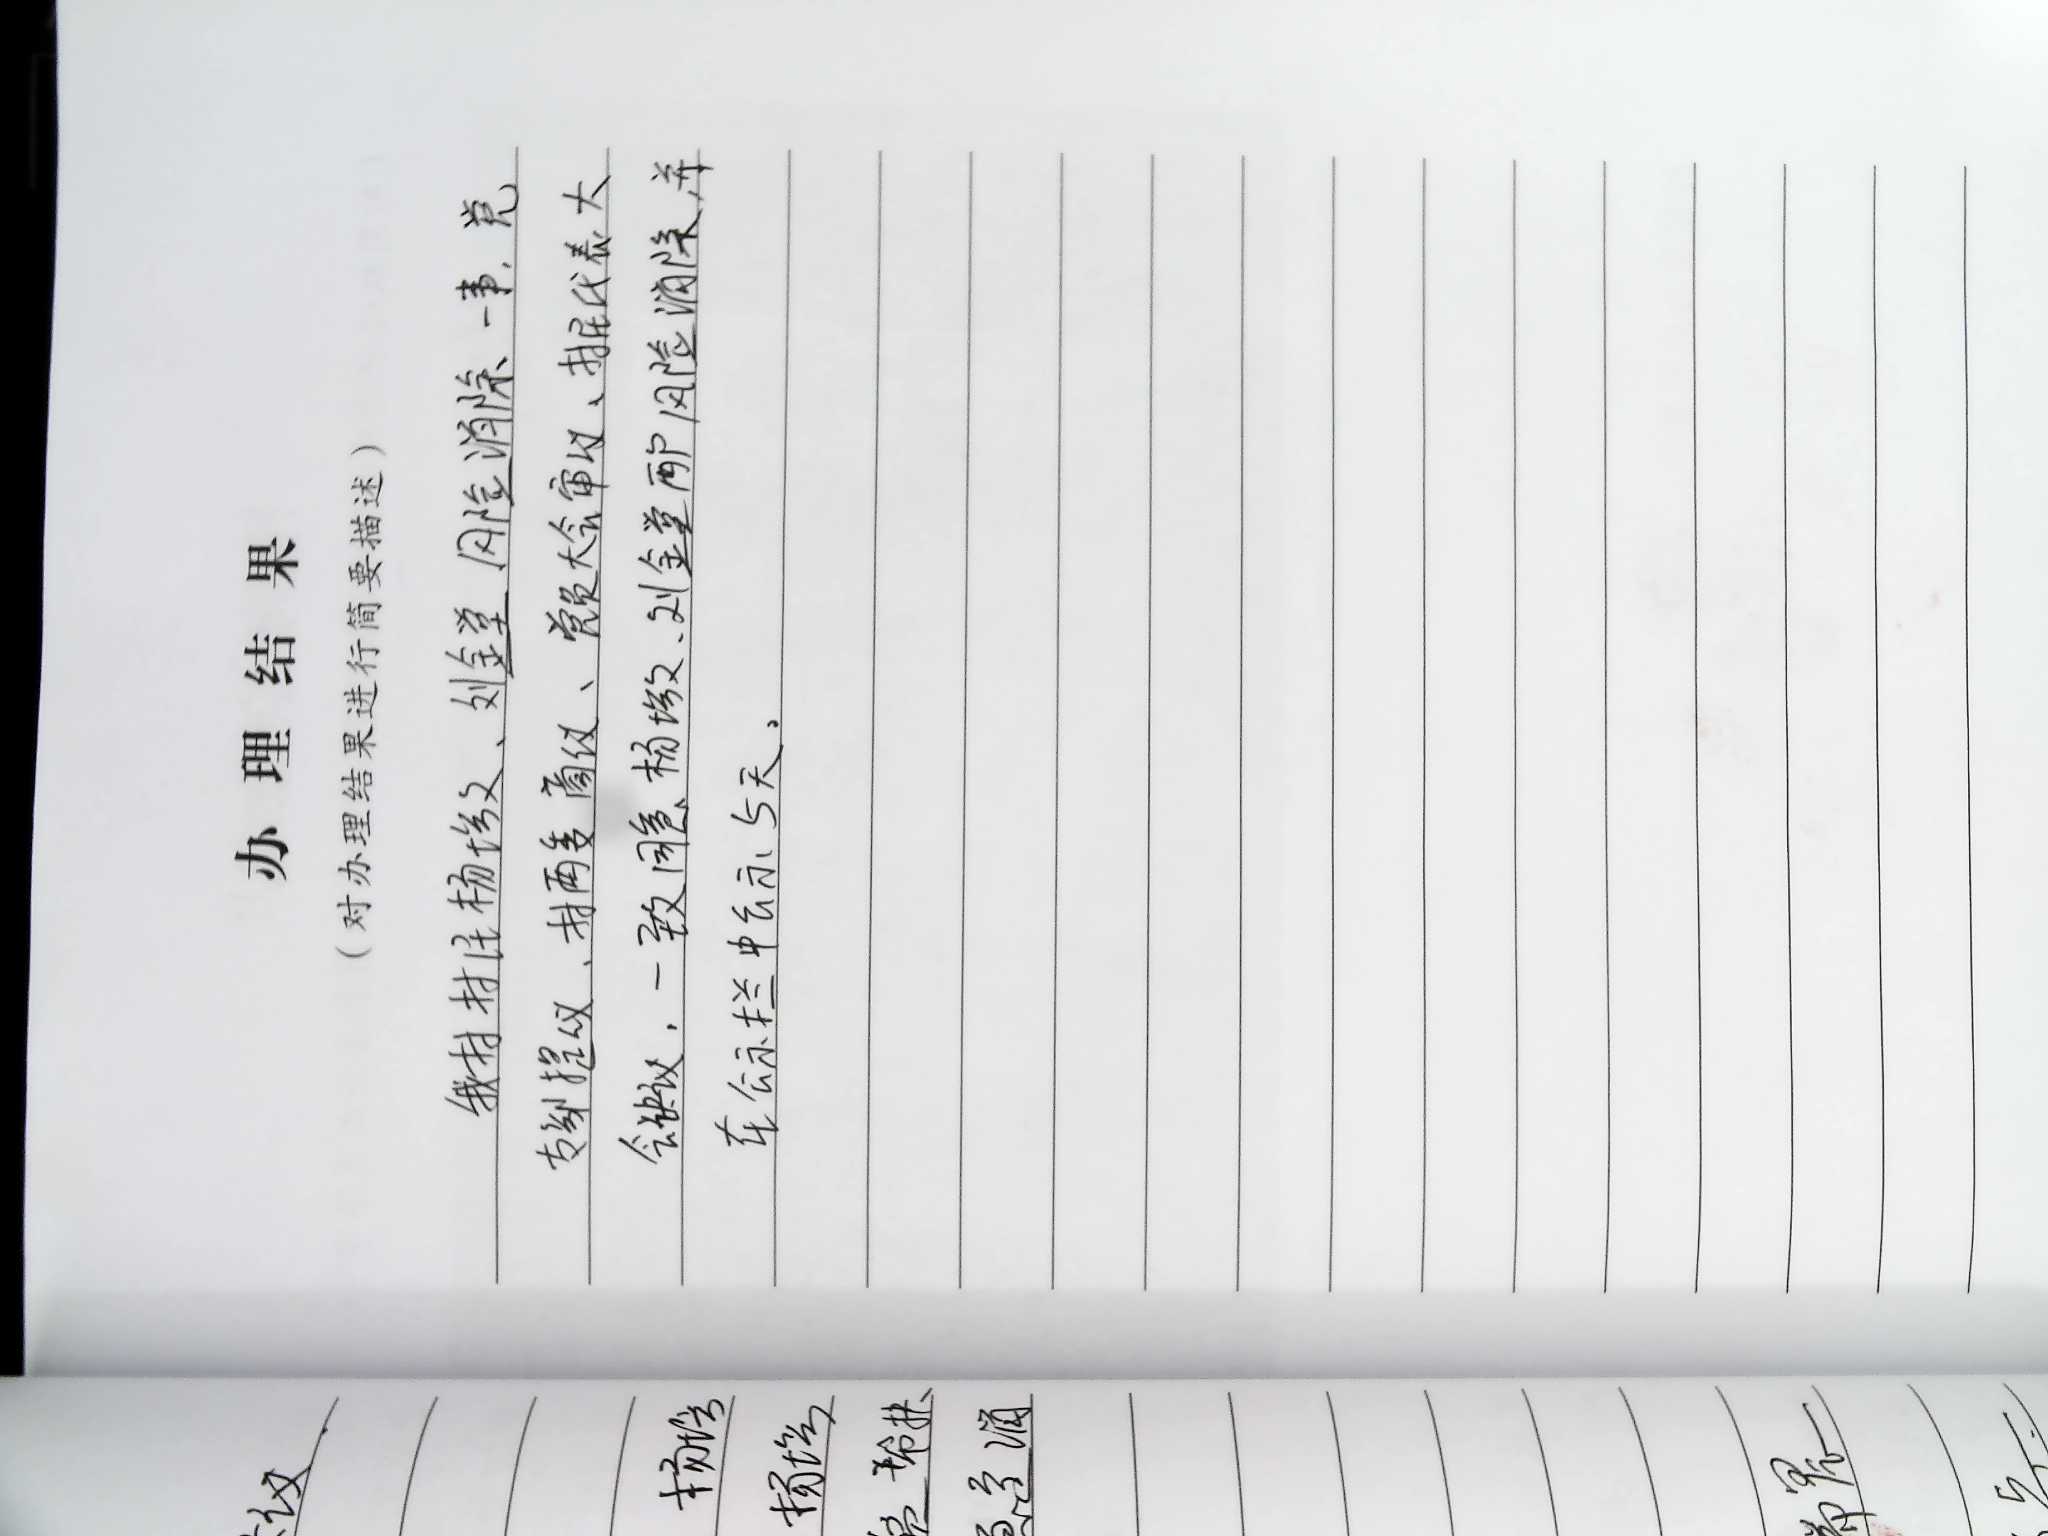 办理结果
（对办理结果进行简要描述）
我村村民杨增文、刘金堂风险消除一事，党
支部提议、村两委商议、党员大会审议、村民代表大
会决议，一致同意杨增文、刘金堂两户风险消除，并
在公示栏中公示5天。
议
杨增
杨增
消